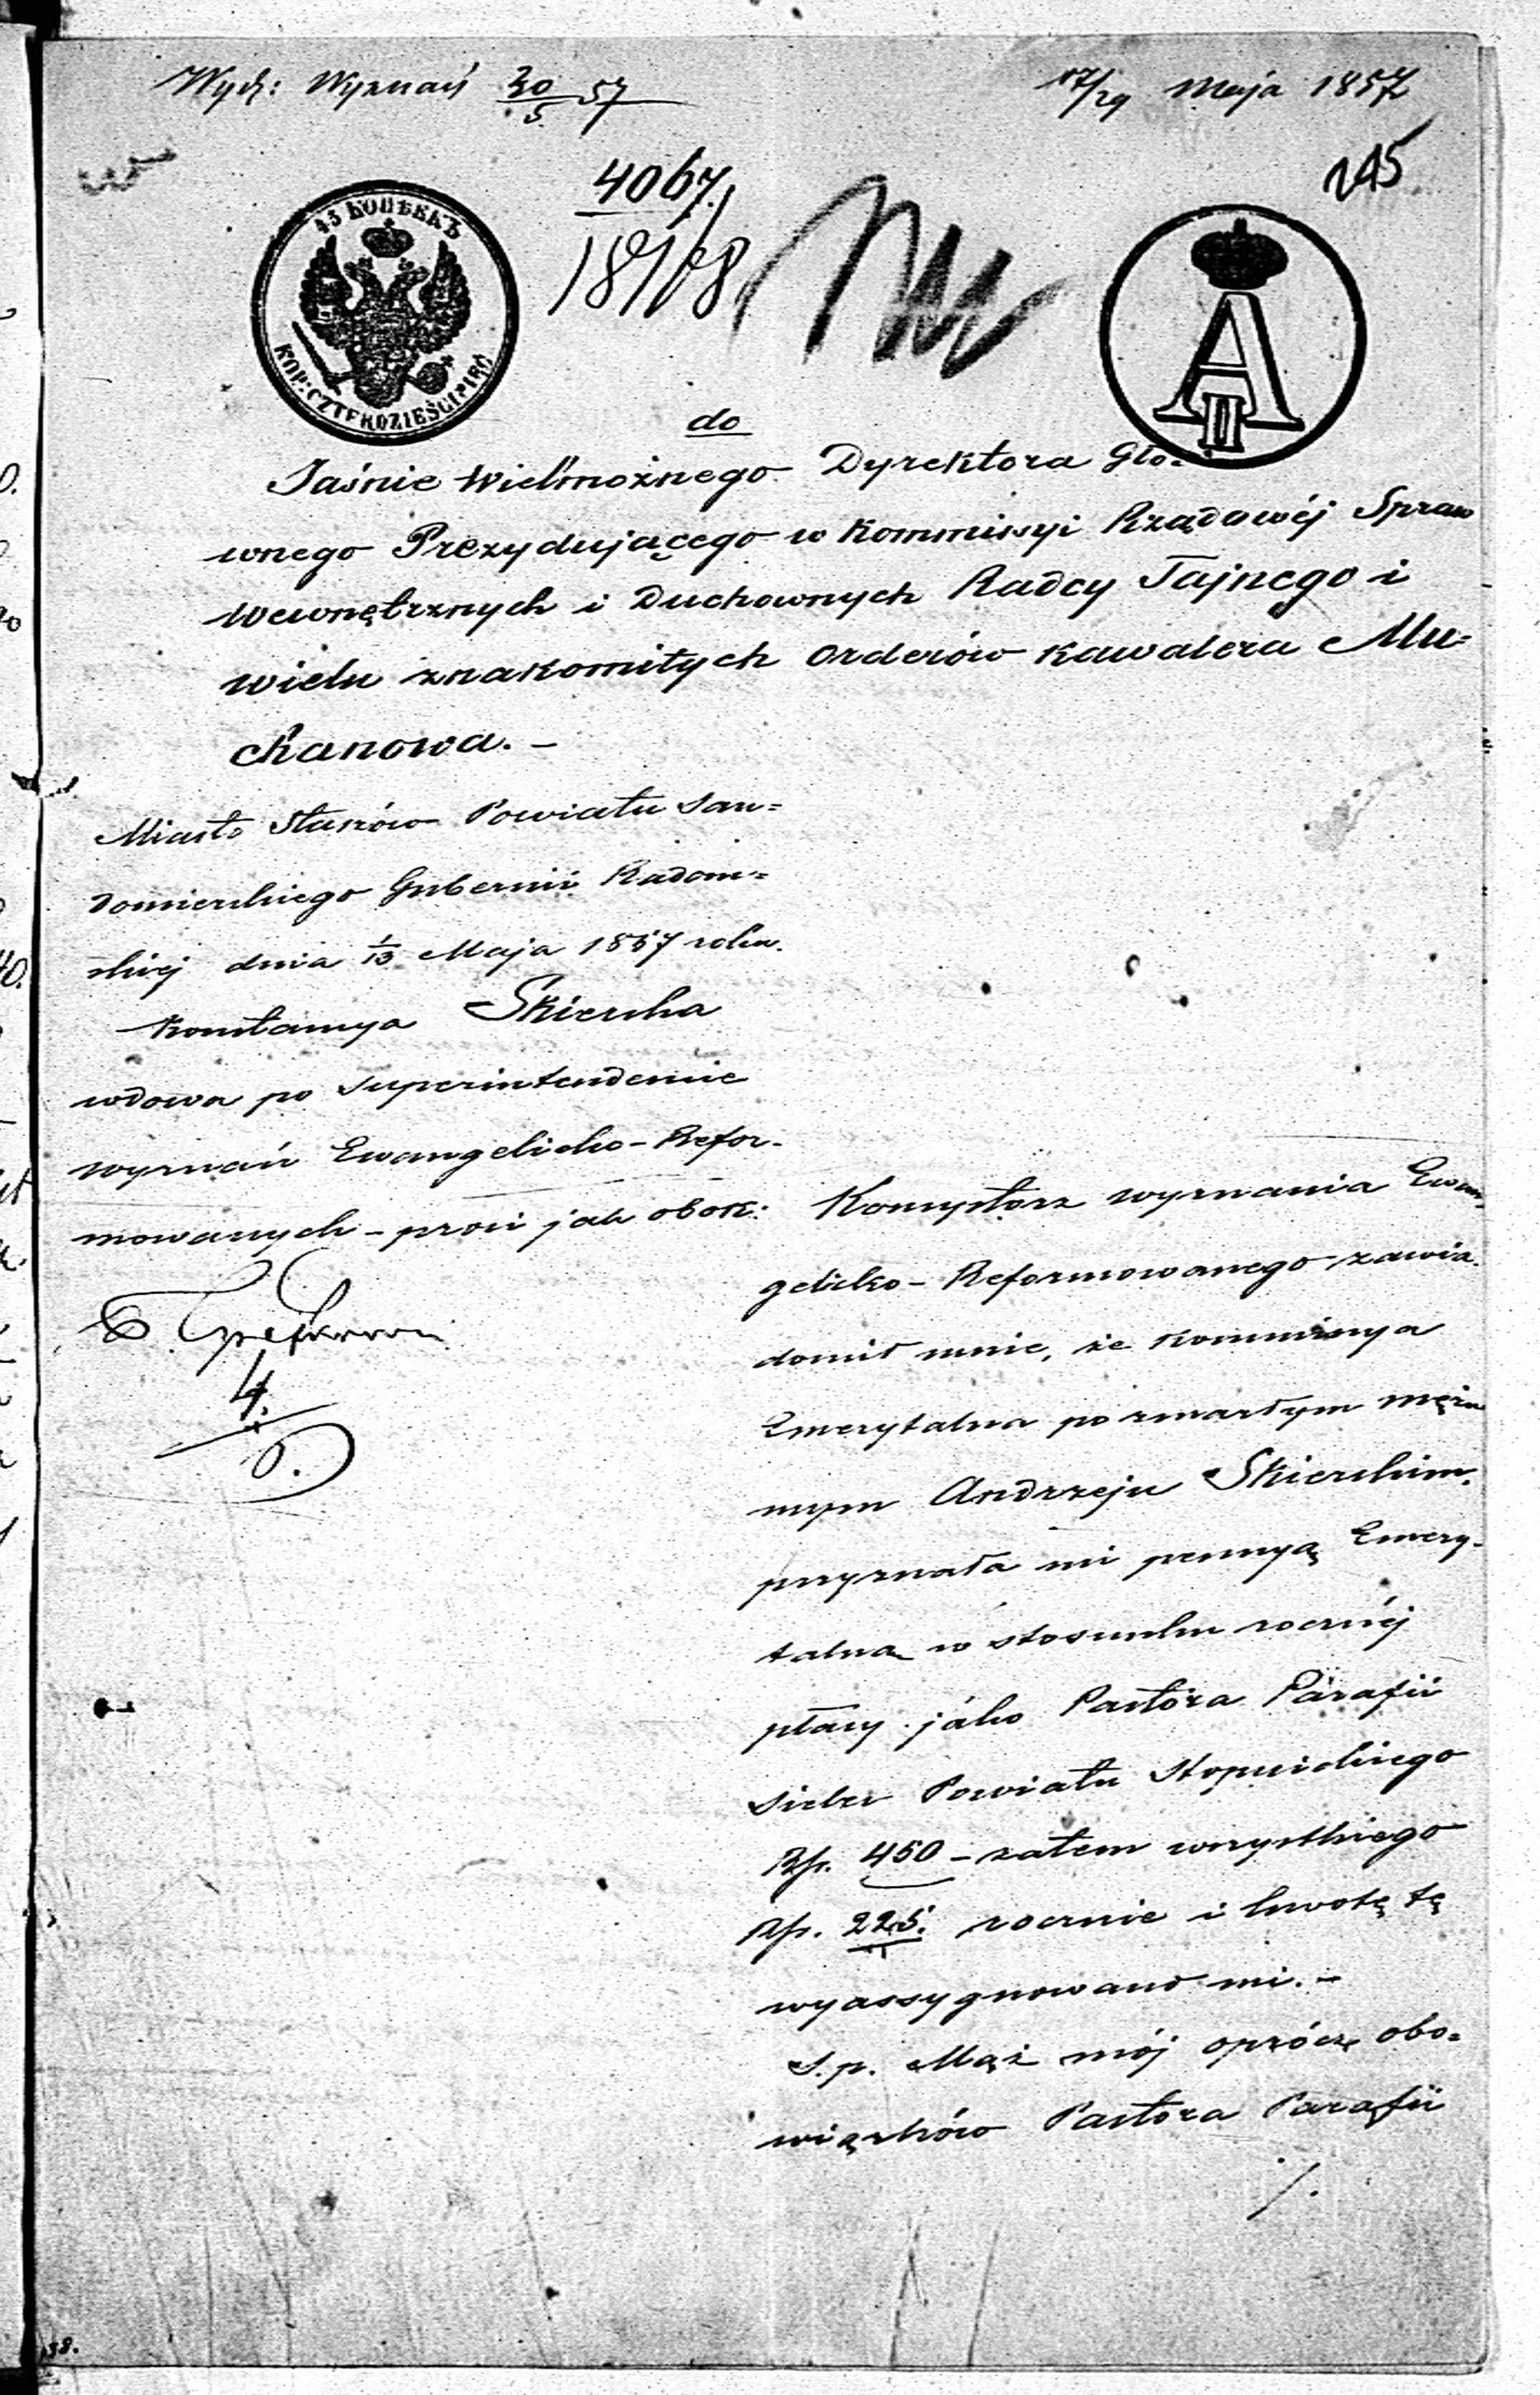 Wydz: Wyznań 30/5 57
17/29 Maja 1857
245
4067.
18168
45 КОПѢЕКЪ
KOP: CZTERDZIEŚCI PIĘĆ
A II
do
Jaśnie Wielmożnego Dyrektora Głó-
wnego Prezydującego w Kommissyi Rządowéj Spraw
Wewnętrznych i Duchownych Radcy Tajnego i
wielu znakomitych Orderów Kawalera Mu=
chanowa. –
Miasto Staszów Powiatu San=
domierskiego Gubernii Radom=
skiej dnia 1/13 Maja 1857 roku.
Konstancya Skierska
wdowa po Superintendencie
wyznań Ewangelicko-Refor-
mowanych – prosi jak obok:
4.
Konsystorz wyznania Ewan-
gelicko-Reformowanego zawia-
domił mnie, że Kommissya
Emerytalna po zmarłym mężu
mym Andrzeju Skierskim,
przyznała mi pensyą Emery-
talną w stosunku rocznéj
płacy jako Pastora Parafii
Sielec Powiatu Stopnickiego
Rs. 450 – zatem wszystkiego
Rs. 225. rocznie i kwotę tę
wyassygnowano mi. –
S. p. Mąż mój oprócz obo=
wiązków Pastora Parafii
/.
38.